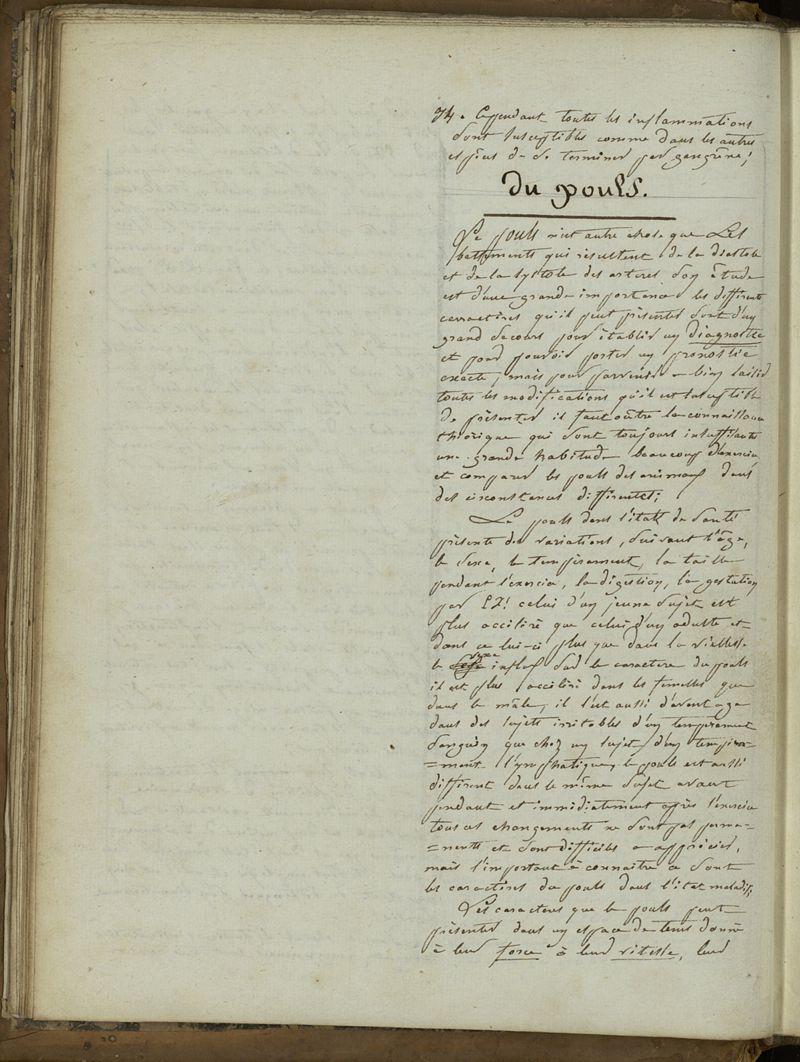 74. Cependant toutes les inflammations
sont susceptibles comme dans les autres
espèces de se terminer par gangrène;
du pouls.
Le pouls n'est autre chose que Les
battements qui résultent de la diastole
et de la systole des arteres son étude
est d'une grande importance les différents
carractères qu'il peut présenter sont d'un
grand secours pour établir un diagnostic
et pour pouvoir porter un pronostic
exacte, mais pour parvenir a bien saisir
toutes les modifications qu'il est susceptible
de présenter il faut outre la connaissance
théorique qui sont toujours insuffisante
une grande habitude beaucoup d'exercice
et comparer les pouls des animaux dans
des circonstances différentes;
Le pouls dans l'état de santé
présente des variations, suivant l'âge,
le sexe, le tempérament, la taille
pendant l'exercice, la digestion, la gestation
par celui d'un jeune sujet est
plus accéliré que celui d'un adulte et
dans ce lui-ci plus que dans la viellesse
le sexe influe sur le caractere du pouls
il est plus accéliré dans les femelles que
dans le mâle, il l'est aussi d'avantage
dans des sujets irritables d'un tempérament
sanguin que chez un sujet d'un tempéra=
=ment lymphatique, le pouls est aussi
différent dans le même sujet avant
pendant et immédiatement après l'exercice
tous ces changements ne sont pas perma=
=nents et sont difficiles a apprécier,
mais l'important à connaitre ce sont
les caractères du pouls dans l'état maladif;
Les caracteres que le pouls peut
présenter dans un espace de tems donné
à leur force à leur vitesse, leur